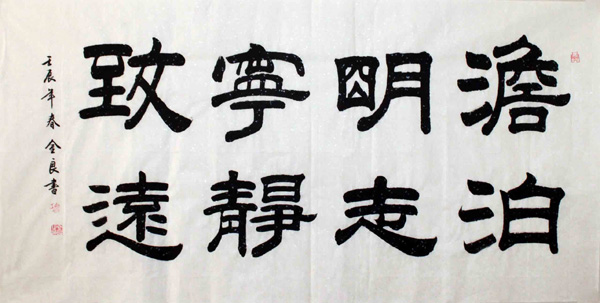 澹泊
明志
寧靜
致遠
壬辰年春全良書